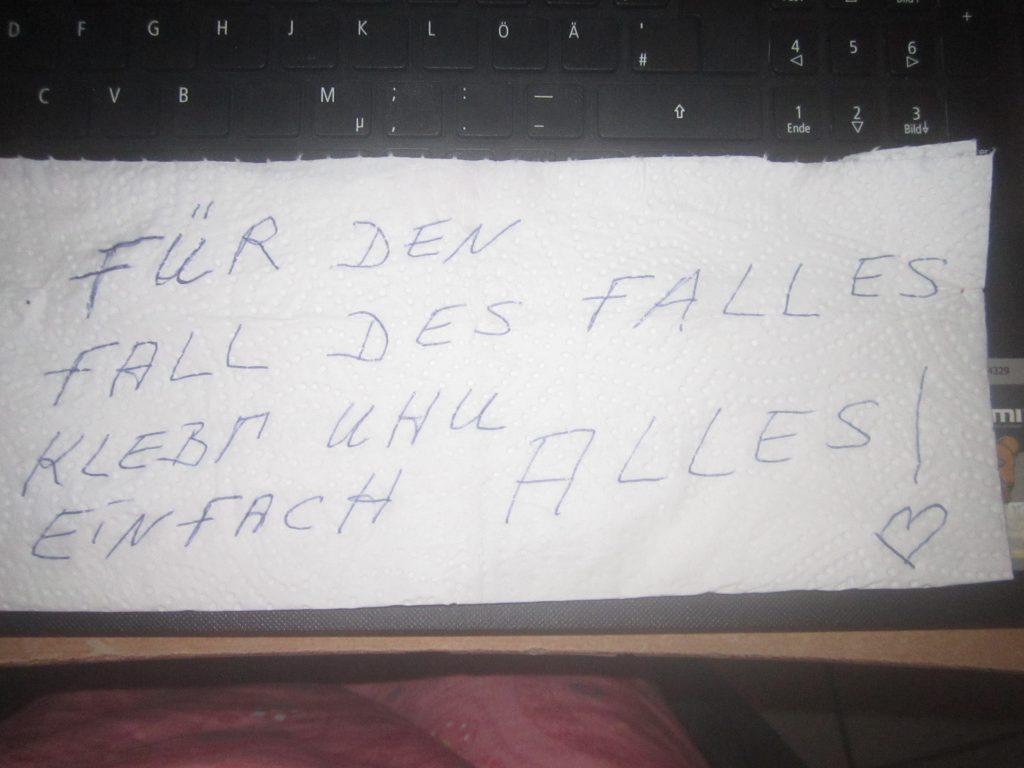 D F G H J K L Ö Ä ' # 4 5 6 +
C V B M µ ; , : . — – 1 Ende 2 3 Bild
FÜR DEN
FALL DES FALLES
KLEBT UHU
EINFACH ALLES!
4329
mi